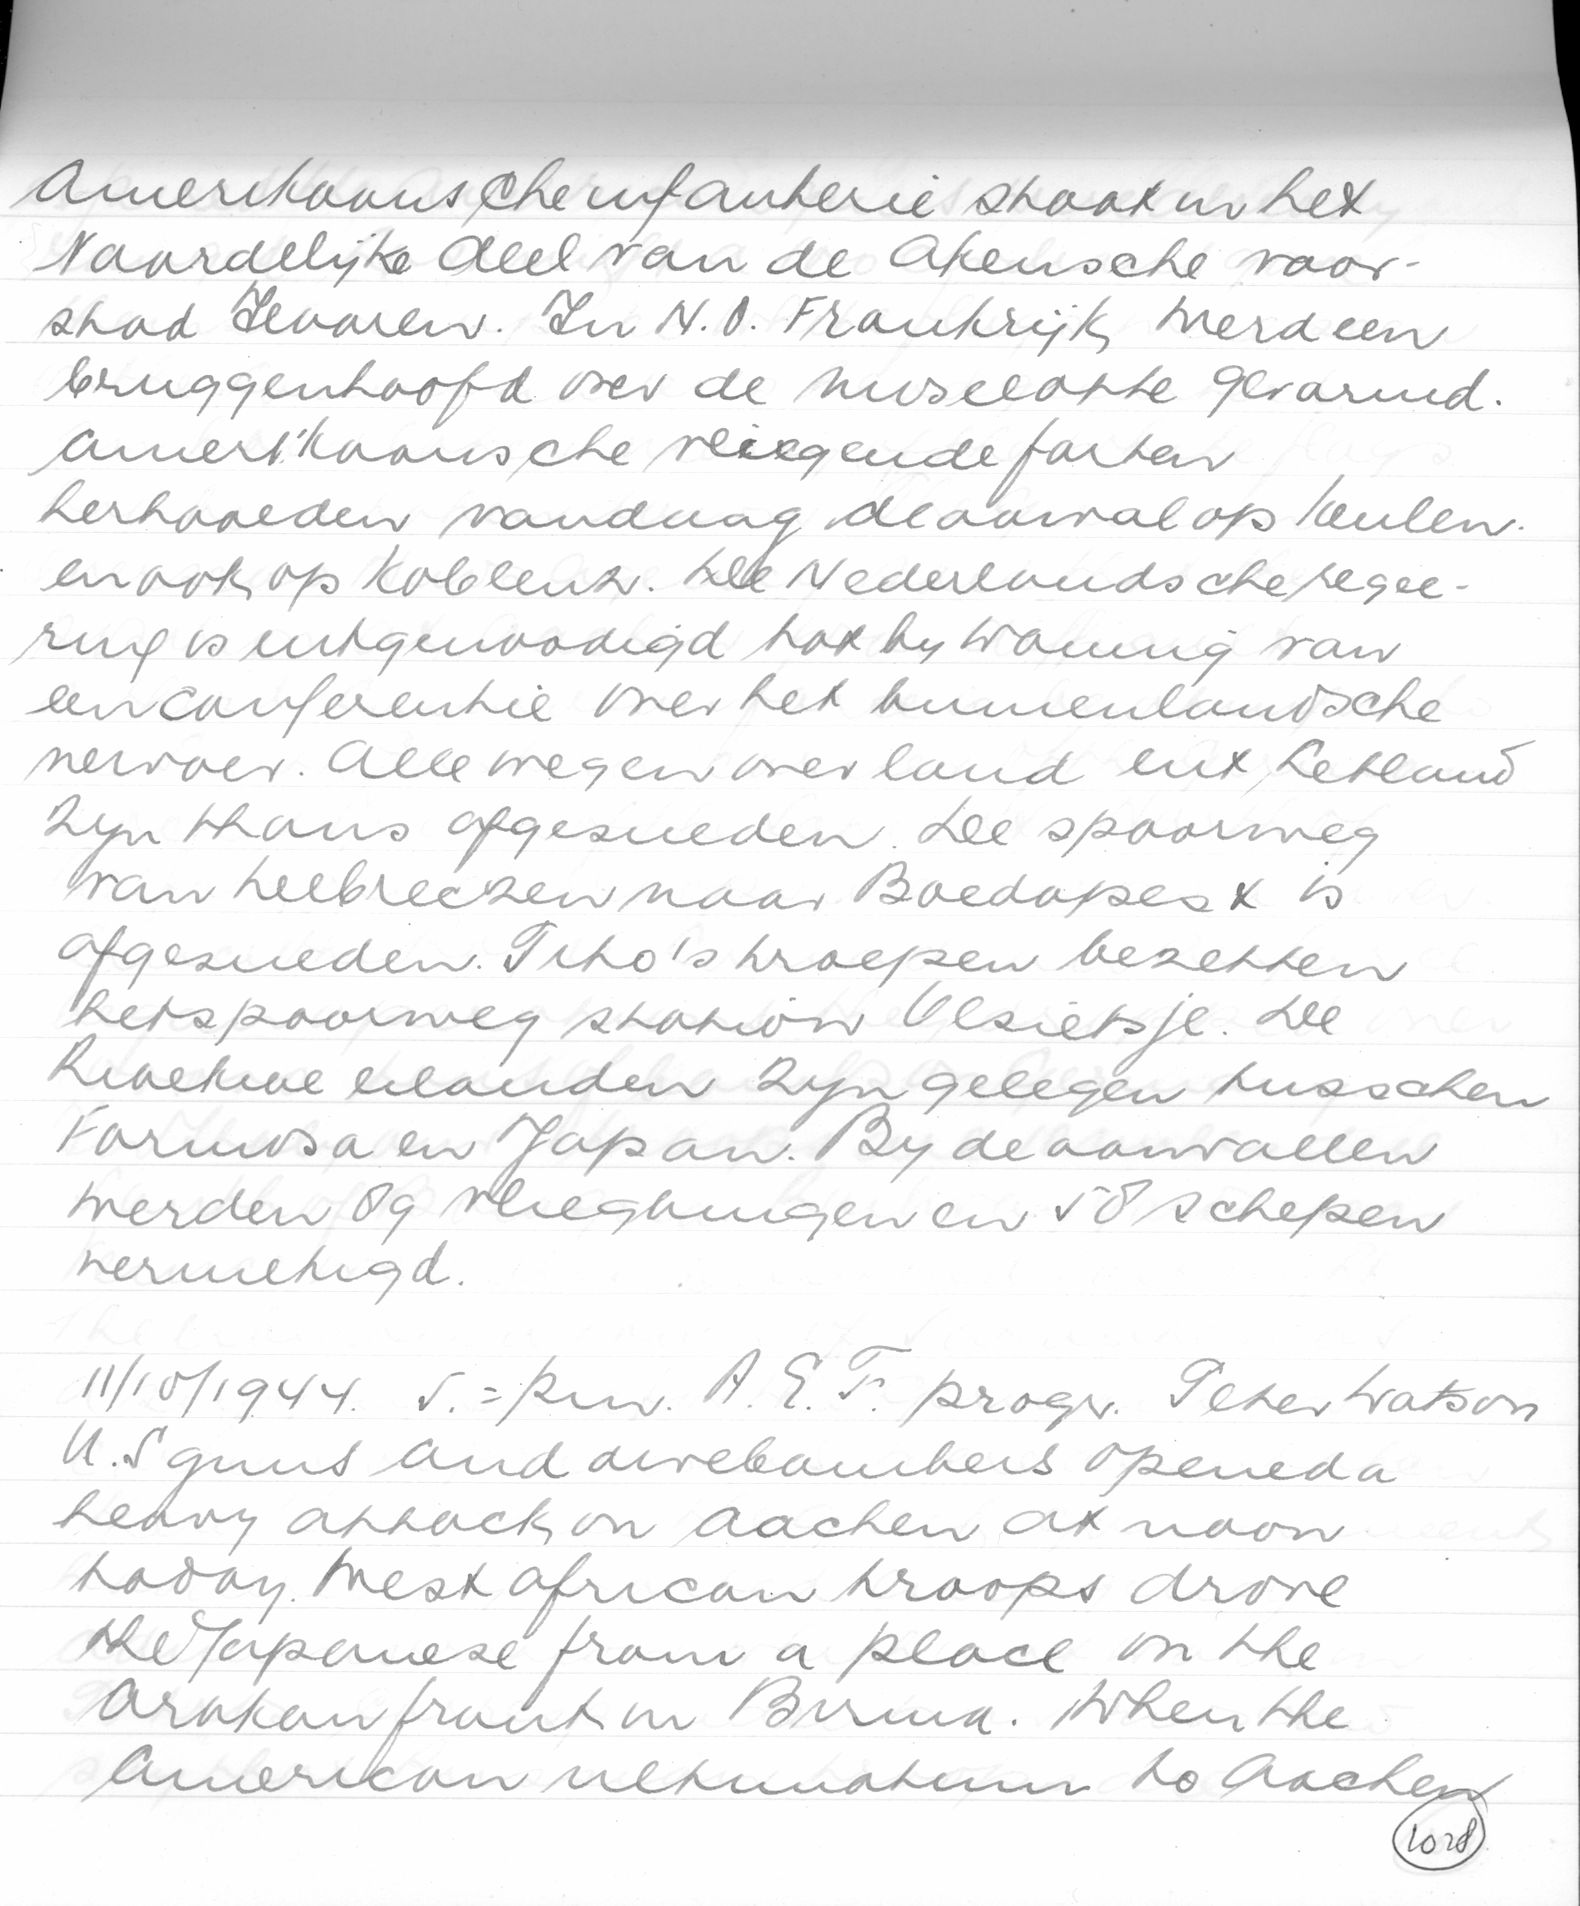 Amerikaansche infanterie staat in het
Noordelijke deel van de Akensche voor-
stad Haaren. In N.O. Frankrijk werd een
bruggenhoofd over de Mos­elotte gevormd.
Amerikaansche vliegende forten
herhaalden vandaag de aanval op Keulen
en ook op Koblenz. De Nederlandsche regee-
ring is uitgenoodigd tot bywoning van
een conferentie over het binnenlandsche
vervoer. Alle wegen over land uit Letland
zyn thans afgesneden. De spoorweg
van Debreczen naar Boedapest is
afgesneden. Tito's troepen bezetten
het spoorweg station
De
Rioekioe eilanden zyn gelegen tusschen
Formosa en Japan. By de aanvallen
werden 89 vliegtuigen en 58 schepen
vernietigd.
11/10/1944. 5.= p.m. A.E.F. progr. Peter Watson
U.S guns and divebombers opened a
heavy attack on Aachen at noon
today. West african troops drove
the Japanese from a place on the
Arakan front in Birma. When the
American ultimatum to Aachen
1028